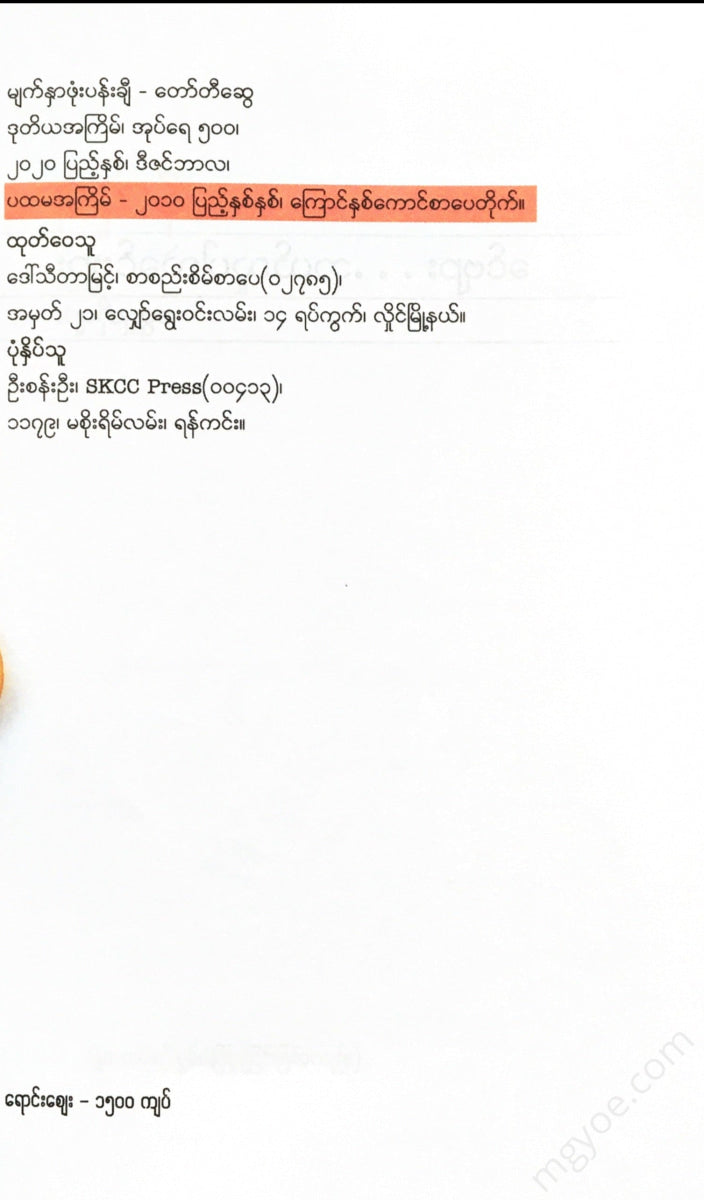 မျက်နှာဖုံးပန်းချီ - တော်တီဆွေ
ဒုတိယအကြိမ်၊ အုပ်ရေ ၅၀၀၊
၂၀၂၀ ပြည့်နှစ်၊ ဒီဇင်ဘာလ၊
ပထမအကြိမ် - ၂၀၁၀ ပြည့်နှစ်နှစ်၊ ကြောင်နှစ်ကောင်စာပေတိုက်။
ထုတ်ဝေသူ
ဒေါ်သီတာမြင့်၊ စာစည်းစိမ်စာပေ(၀၂၇၈၅)၊
အမှတ် ၂၁၊ လျှော်ရွေးဝင်းလမ်း၊ ၁၄ ရပ်ကွက်၊ လှိုင်မြို့နယ်။
ပုံနှိပ်သူ
ဦးစန်းဦး၊ SKCC Press(၀၀၄၁၃)၊
၁၁၇၉၊ မစိုးရိမ်လမ်း၊ ရန်ကင်း။
ရောင်းဈေး - ၁၅၀၀ ကျပ်
mgyoe.com